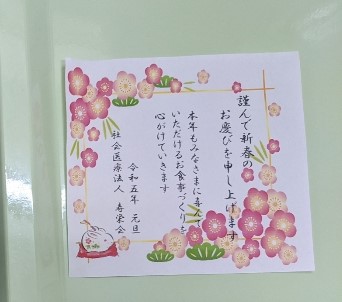 謹んで新春の
お慶びを申し上げます
本年もみなさまに喜んで
いただけるお食事づくりを
心がけていきます
令和五年 元旦
社会医療法人 寿栄会